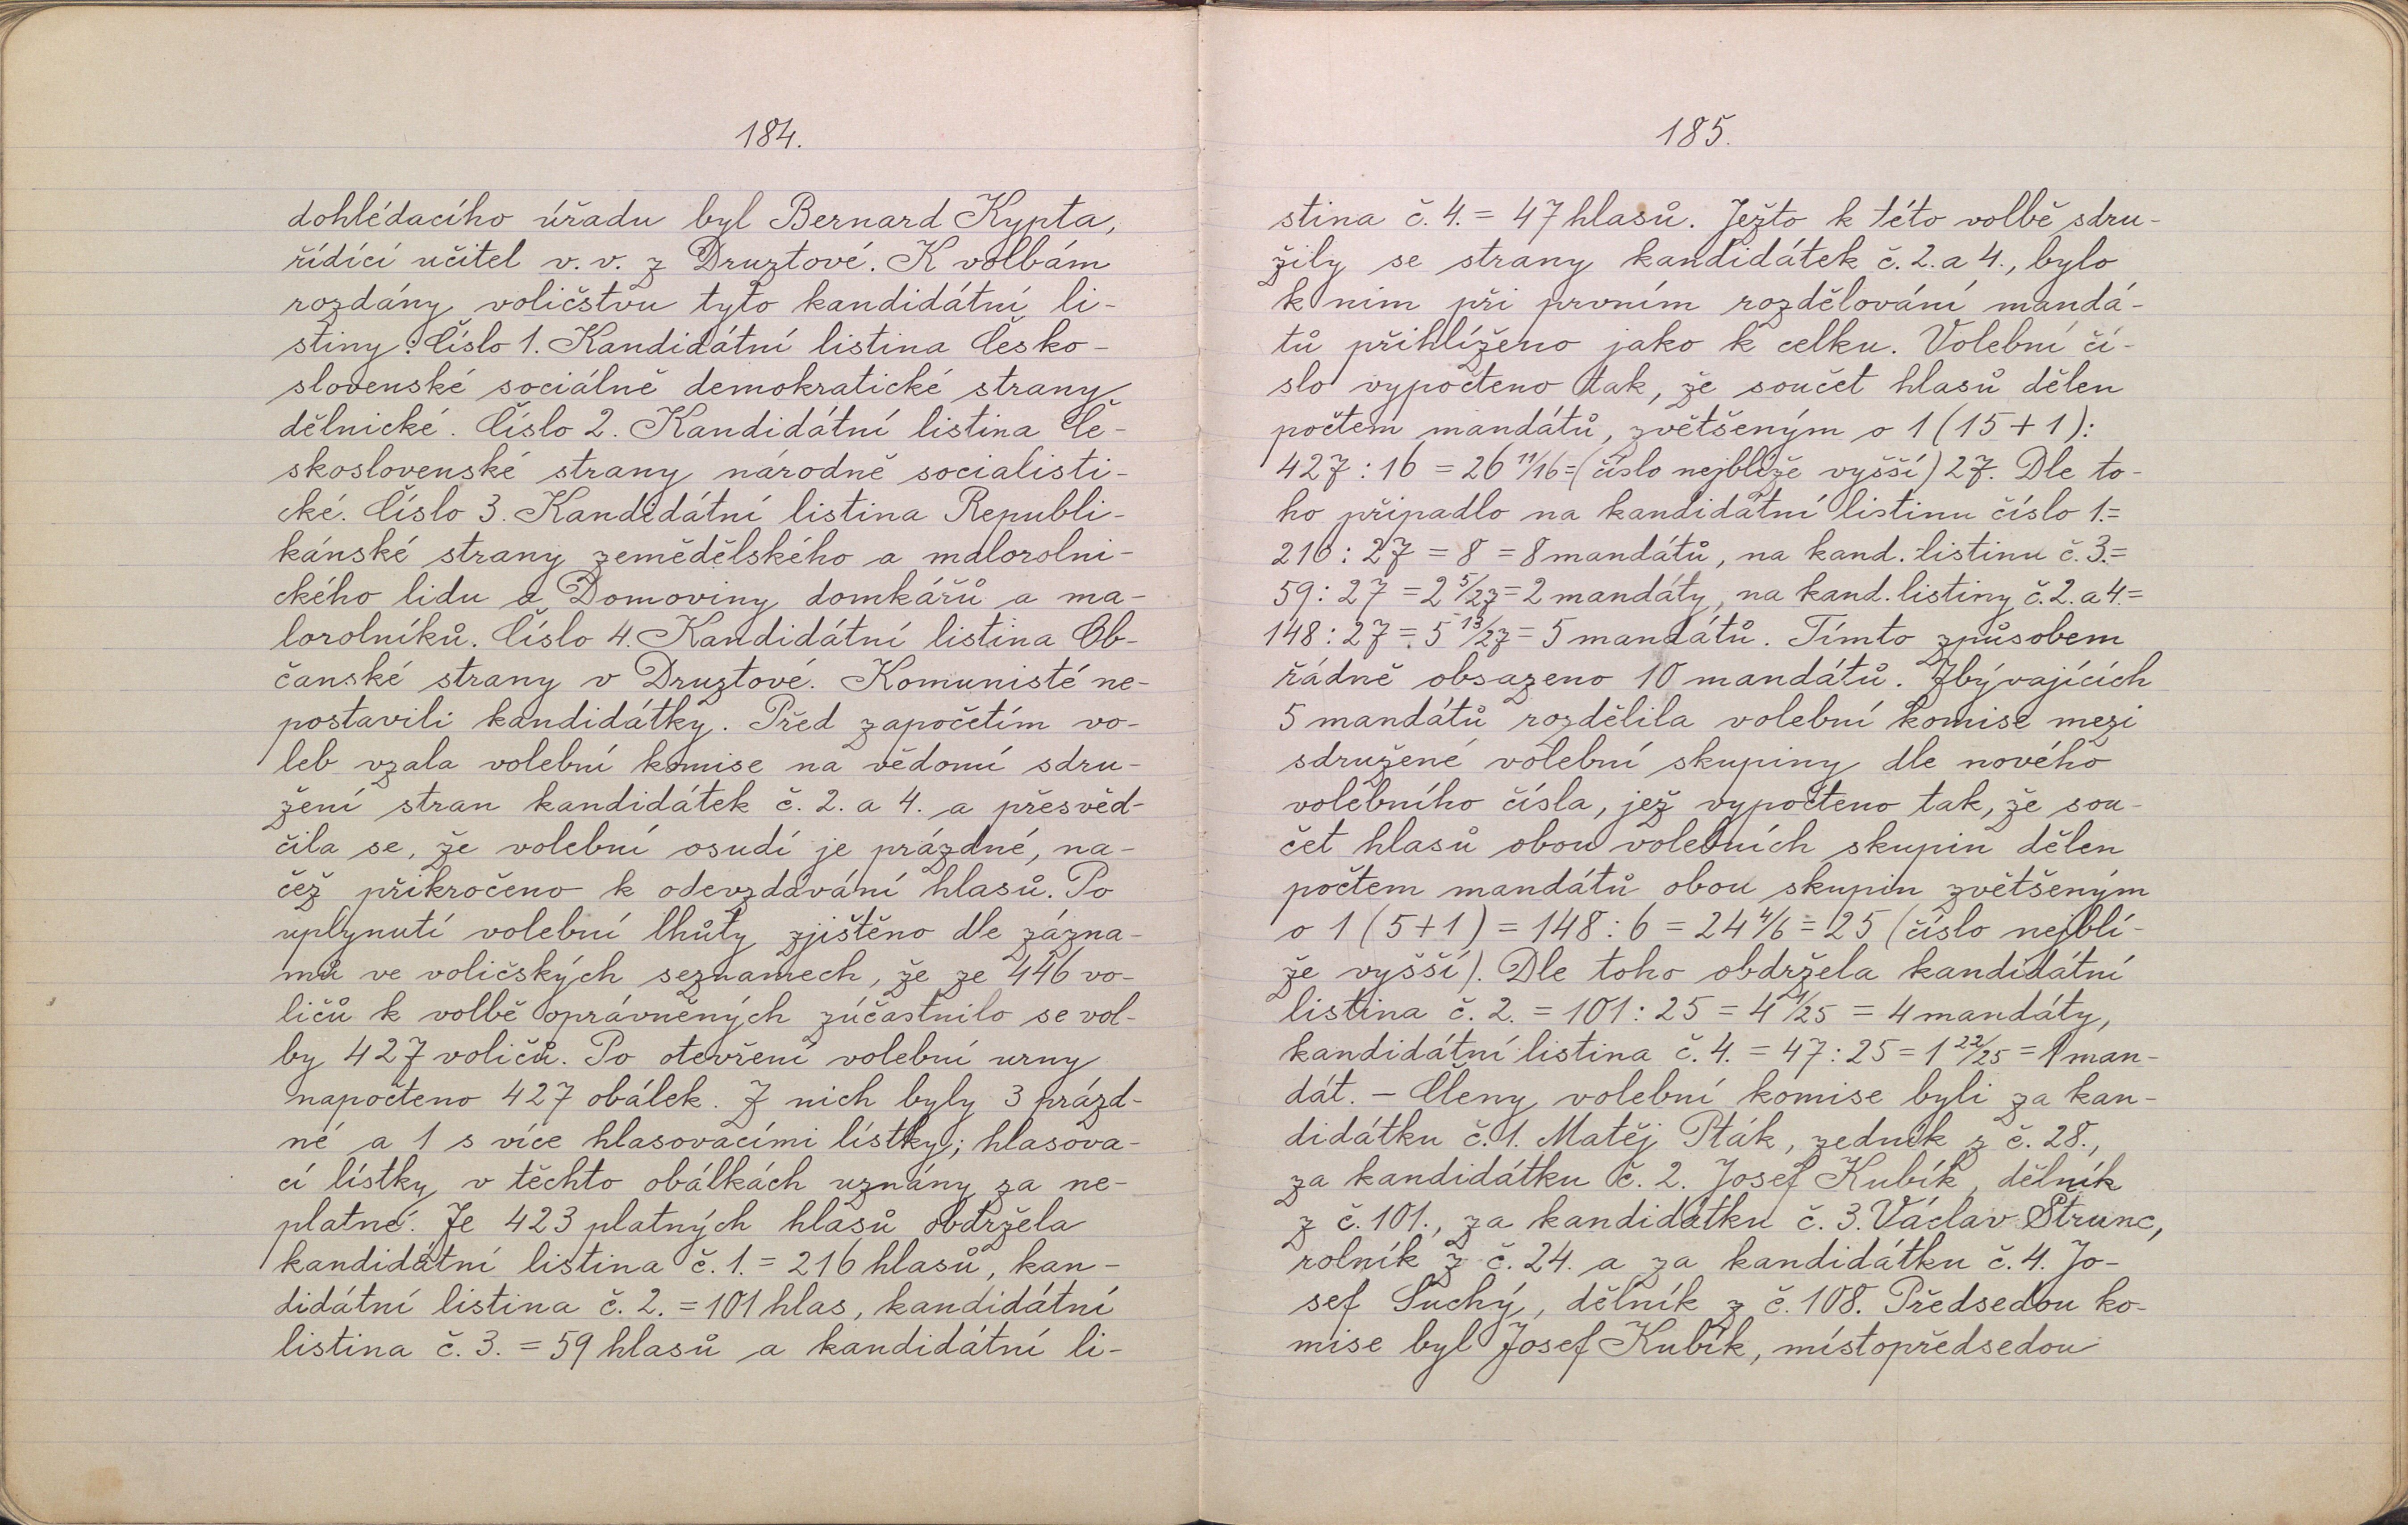 184.
dohlédacího úřadu byl Bernard Kypta,
řídící učitel v. v. z Druztové. K volbám
rozdány voličstvu tyto kandidátní li-
stiny: Číslo 1. Kandidátní listina Česko-
slovenské sociálně demokratické strany
dělnické. Číslo 2. Kandidátní listina Če-
skoslovenské strany národně socialisti-
cké. Číslo 3. Kandidátní listina Republi-
kánské strany zemědělského a malorolni-
ckého lidu a Domoviny domkářů a ma-
lorolníků. Číslo 4. Kandidátní listina Ob-
čanské strany v Druztové. Komunisté ne-
postavili kandidátky. Před započetím vo-
leb vzala volební komise na vědomí sdru-
žení stran kandidátek č. 2. a 4. a přesvěd-
čila se, že volební osudí je prázdné, na-
čež přikročeno k odevzdávání hlasů. Po
uplynutí volební lhůty zjištěno dle zázna-
mů ve voličských seznamech, že ze 446 vo-
ličů k volbě oprávněných zúčastnilo se vol-
by 427 voličů. Po otevření volební urny
napočteno 427 obálek. Z nich byly 3 prázd-
né a 1 s více hlasovacími lístky; hlasova-
cí lístky v těchto obálkách uznány za ne-
platné. Ze 423 platných hlasů obdržela
kandidátní listina č. 1. = 216 hlasů, kan-
didátní listina č. 2. = 101 hlas, kandidátní
listina č. 3. = 59 hlasů a kandidátní li-
185.
stina č. 4. = 47 hlasů. Ježto k této volbě sdru-
žily se strany kandidátek č. 2. a 4., bylo
k nim při prvním rozdělování mandá-
tů přihlíženo jako k celku. Volební čí-
slo vypočteno tak, že součet hlasů dělen
počtem mandátů, zvětšeným o 1 (15 + 1):
427 : 16 = 26 11/16 = (číslo nejblíže vyšší) 27. Dle to-
ho připadlo na kandidátní listinu číslo 1. =
216 : 27 = 8 = 8 mandátů, na kand. listinu č. 3. =
59 : 27 = 2 5/27 = 2 mandáty, na kand. listiny č. 2. a 4. =
148 : 27 = 5 13/27 = 5 mandátů. Tímto způsobem
řádně obsazeno 10 mandátů. Zbývajících
5 mandátů rozdělila volební komise mezi
sdružené volební skupiny dle nového
volebního čísla, jež vypočteno tak, že sou-
čet hlasů obou volebních skupin dělen
počtem mandátů obou skupin zvětšeným
o 1 (5 + 1) = 148 : 6 = 24 4/6 = 25 (číslo nejblí-
že vyšší). Dle toho obdržela kandidátní
listina č. 2. = 101 : 25 = 4 1/25 = 4 mandáty,
kandidátní listina č. 4. = 47 : 25 = 1 22/25 = 1 man-
dát. - Členy volební komise byli za kan-
didátku č. 1. Matěj Pták, zedník z č. 28.,
za kandidátku č. 2. Josef Kubík, dělník
z č. 101., za kandidátku č. 3. Václav Strunc,
rolník z č. 24. a za kandidátku č. 4. Jo-
sef Suchý, dělník z č. 108. Předsedou ko-
mise byl Josef Kubík, místopředsedou